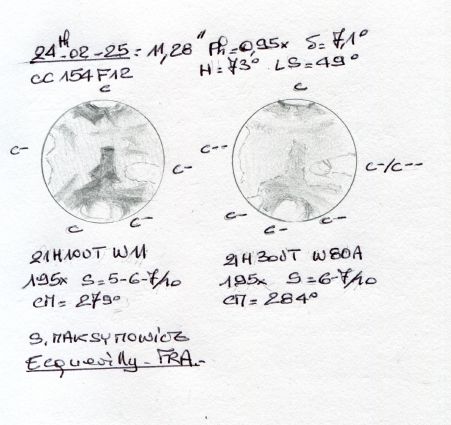 24th-02-25 = 11,28" Ph=0,95x δ=7,1°
CC 154 F12 H=73° LS=49°
C C
C- C- C-- C-/C--
C C- C- C- C-
21H10UT W11 21H30UT W80A
195x S=5-6-7/10 195x S=6-7/10
CM=279° CM=284°
S. MAKSYMOWICZ
Ecquevilly-FRA.-